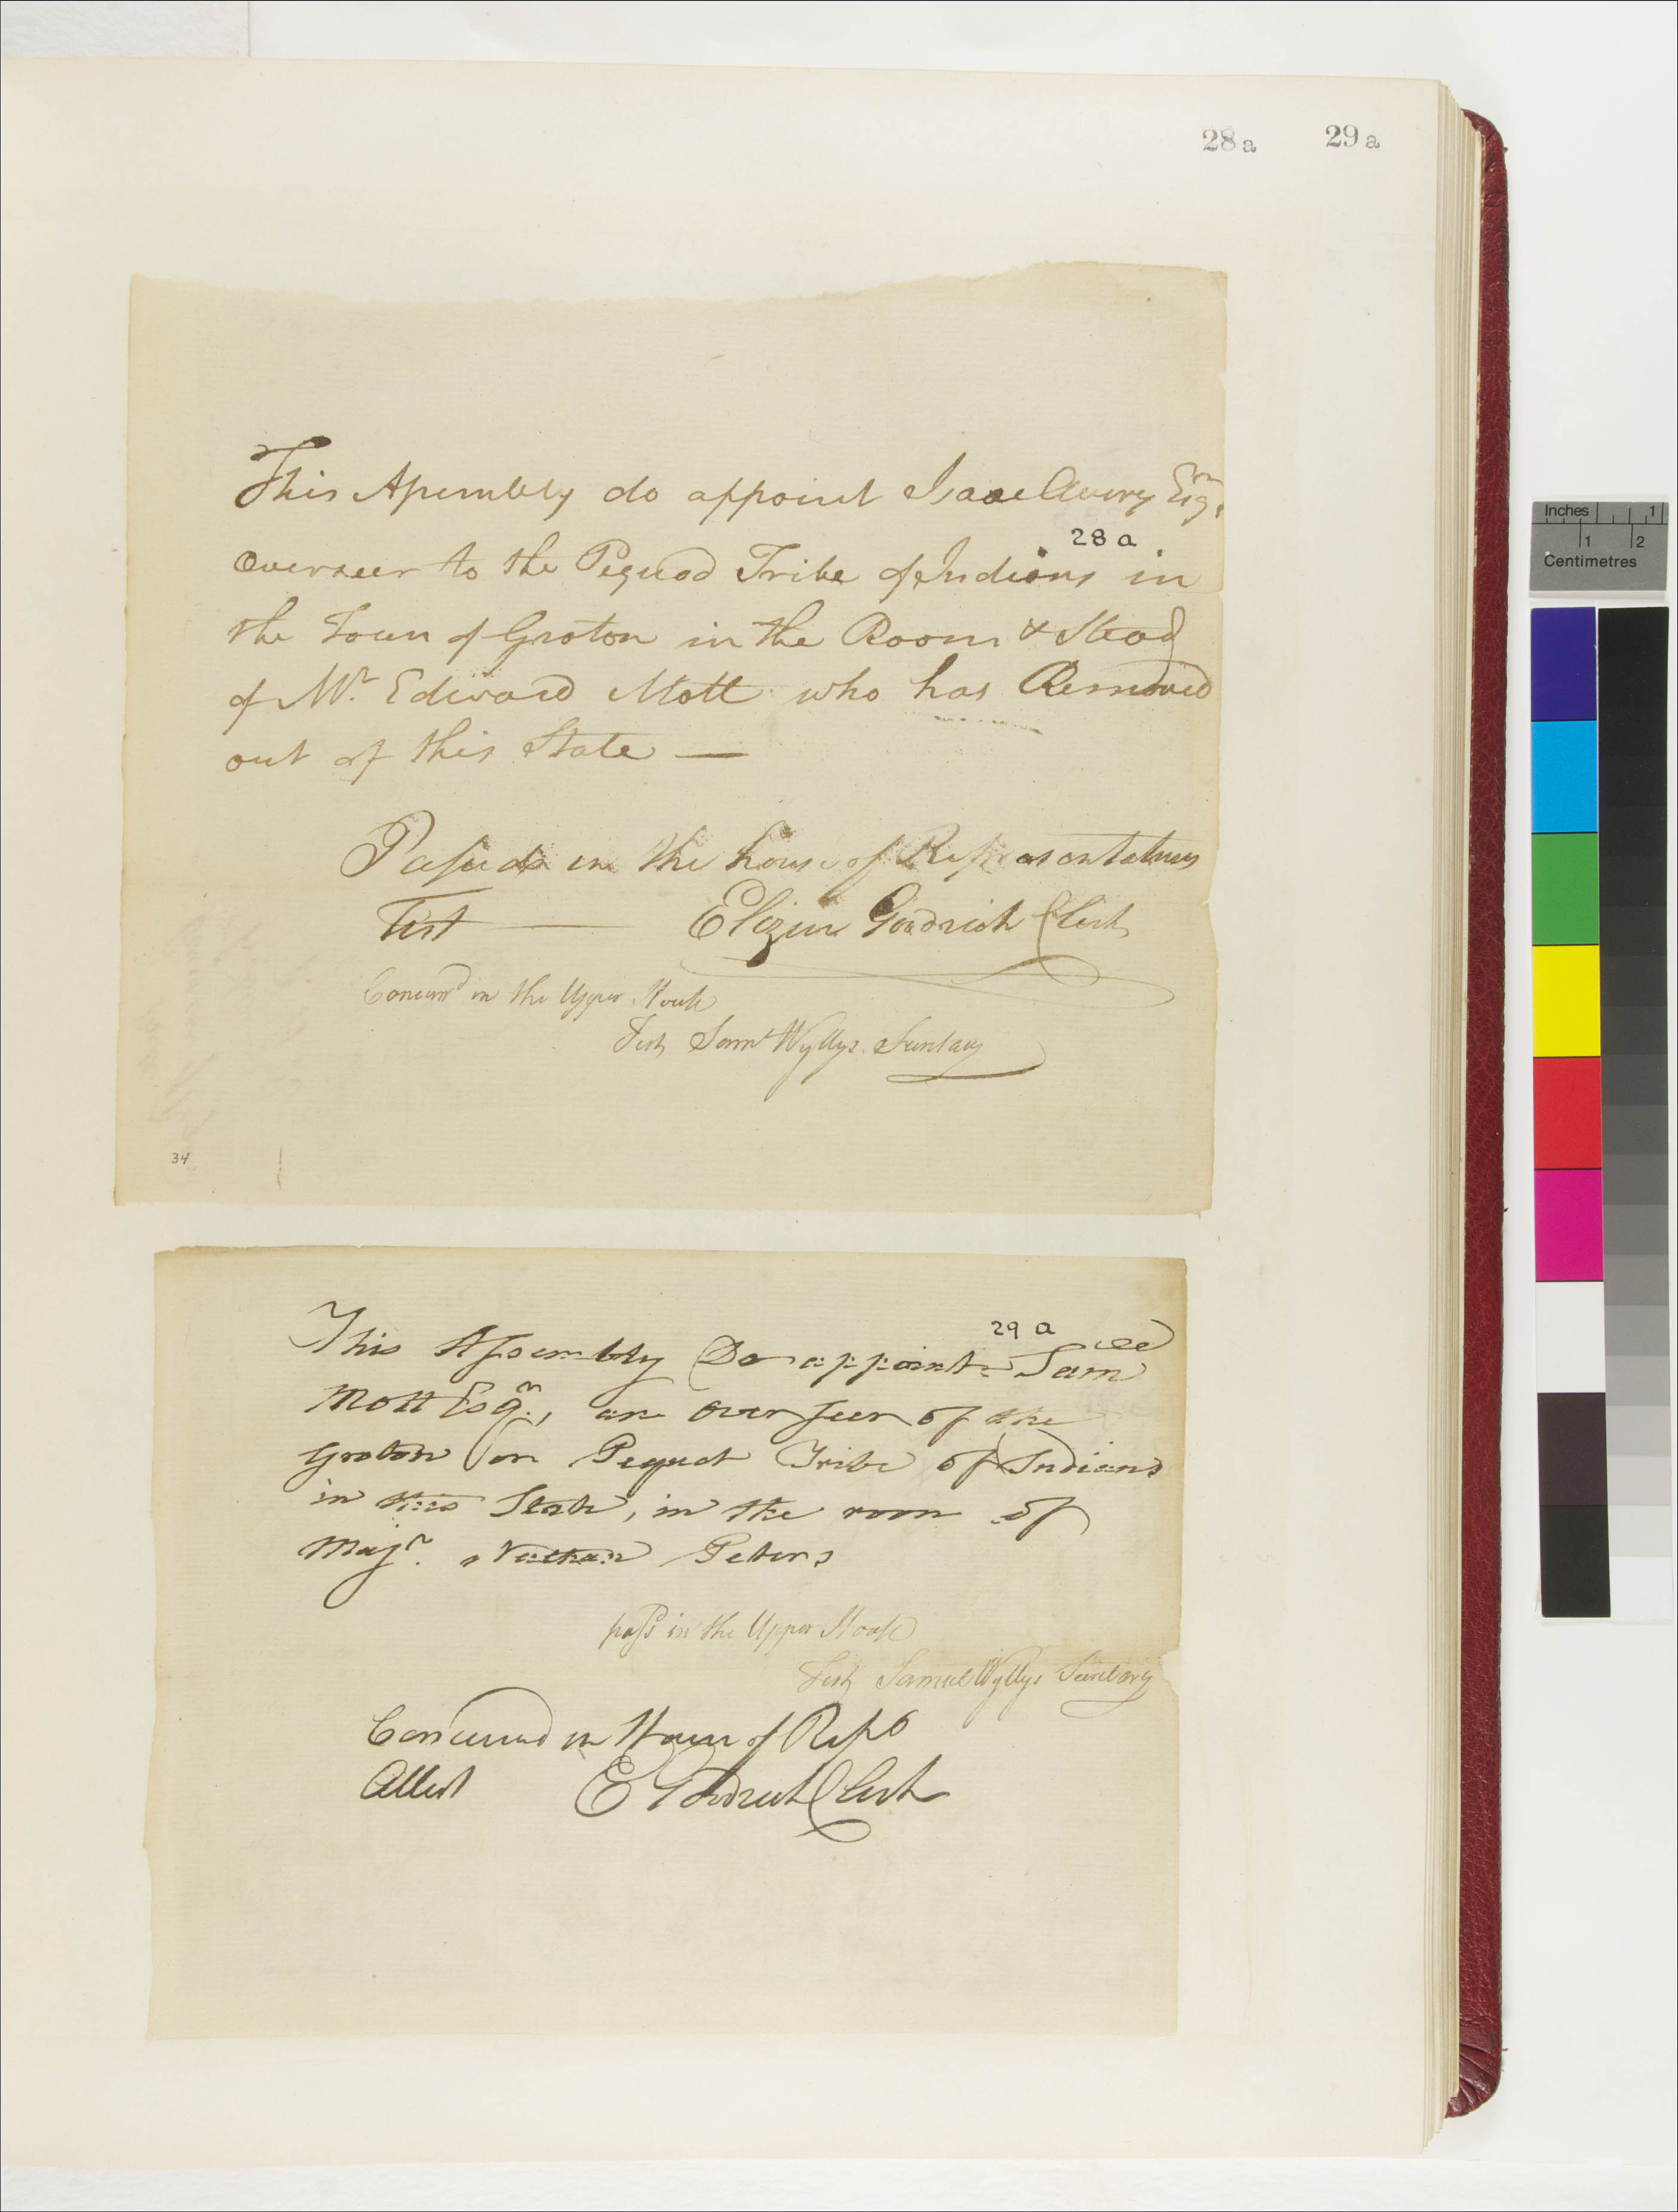 28a 29a
This Assembly do appoint Isaac Avery Esqr.
28a
overseer to the Pequod Tribe of Indians in
the Town of Groton in the Room & Stead
of Mr. Edward Mott who has Removed
out of this State —
Passed in the house of Representatives
Test — Elizur Goodrich Clerk
Concurrd in the Upper House
Test Saml Wyllys Secretary
34
29a
This Assembly Do appoint Samuel
Mott Esqr., an overseer of the
Groton or Pequot Tribe of Indians
in this State, in the room of
Majr. Nathan Peters
passd in the Upper House
Test Samuel Wyllys Secretary
Concurred in House of Reps
Attest E Goodrich Clerk
Inches 1
1 2
Centimetres